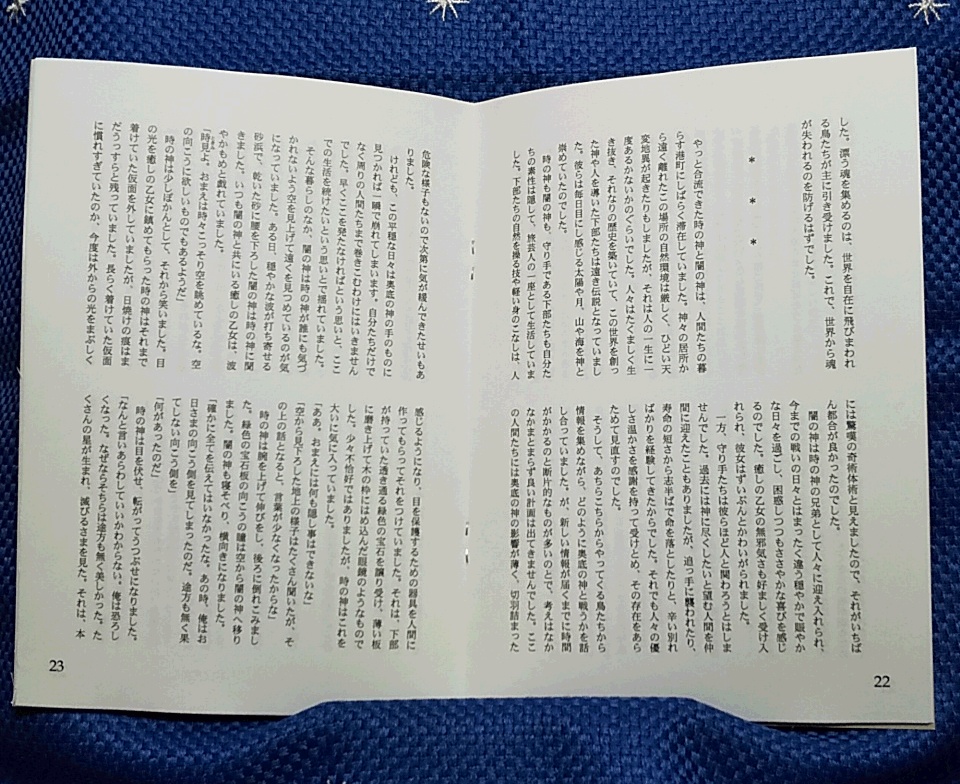 した。漂う魂を集めるのは、世界を自在に飛びまわれ
る鳥たちが主に引き受けました。これで、世界から魂
が失われるのを防げるはずでした。
＊　＊　＊
やっと合流できた時の神と闇の神は、人間たちの暮
らす港町にしばらく滞在していました。神々の居所か
ら遠く離れたこの場所の自然環境は厳しく、ひどい天
変地異が起きたりもしましたが、それは人の一生に一
度あるかないかのぐらいでした。人々はたくましく生
き抜き、それなりの歴史を築いていて、この世界を創っ
た神や人を導いた下部たちは遠き伝説となっていまし
た。彼らは毎日目に感じる太陽や月、山や海を神と
崇めていたのでした。
時の神も闇の神も、守り手である下部たちも自分た
ちの素性は隠して、旅芸人の一座として生活していま
した。下部たちの自然を操る技や軽い身のこなしは、人
には驚嘆の奇術体術と見えましたので、それがいちば
ん都合が良かったのでした。
闇の神は時の神の兄弟として人々に迎え入れられ、
今までの戦いの日々とはまったく違う穏やかで賑やか
な日々を過ごし、困惑しつつもささやかな喜びを感じ
るのでした。癒しの乙女の無邪気さも好ましく受け入
れられ、彼女はずいぶんとかわいがられました。
一方、守り手たちは彼らほど人と関わろうとはしま
せんでした。過去には神に尽くしたいと望む人間を仲
間に迎えたこともありましたが、追っ手に襲われたり、
寿命の短さから志半ばで命を落としたりと、辛い別れ
ばかりを経験してきたからでした。それでも人々の優
しさ温かさを感謝を持って受けとめ、その存在をあら
ためて見直すのでした。
そうして、あちらこちらからやってくる鳥たちから
情報を集めながら、どのように奥底の神と戦うかを話
し合っていましたが、新しい情報が届くまでに時間
がかかるのと断片的なものが多いのとで、考えはなか
なかまとまらず良い計画は出てきませんでした。ここ
の人間たちには奥底の神の影響が薄く、切羽詰まった
22
危険な様子もないので次第に気が緩んできたせいもあ
りました。
けれども、この平穏な日々は奥底の神の手のものに
見つかれば一瞬で崩れてしまいます。自分たちだけで
なく周りの人間たちまで巻きこむわけにはいきません
でした。早くここを発たなければという思いと、ここ
での生活を続けたいという思いとで揺れていました。
そんな暮らしのなか、闇の神は時の神が誰にも気づ
かれないよう空を見上げて遠くを見つめているのが気
になっていました。ある日、穏やかな波が打ち寄せる
砂浜で、乾いた砂に腰を下ろした闇の神は時の神に聞
きました。いつも闇の神と共にいる癒しの乙女は、波
やかもめと戯れていました。
「時見よ。おまえは時々こっそり空を眺めているな。空
の向こうに欲しいものでもあるようだ」
時の神は少しぽかんとして、それから笑いました。目
の光を癒しの乙女に鎮めてもらった時の神はそれまで
着けていた仮面を外していましたが、日焼けの痕はま
だうっすらと残っていました。長らく着けていた仮面
に慣れすぎていたのか、今度は外からの光をまぶしく
感じるようになり、目を保護するための器具を人間に
作ってもらってそれをつけていました。それは、下部
が持っていた透き通る緑色の宝石を譲り受け、薄い板
に磨き上げて木の枠にはめ込んだ眼鏡のようなもので
した。少々不恰好ではありましたが、時の神はこれを
大いに気に入っていました。
「ああ、おまえには何も隠し事はできないな」
「空から見下ろした地上の様子はたくさん聞いたが、そ
の上の話となると、言葉が少なくなったからな」
時の神は腕を上げて伸びをし、後ろに倒れこみまし
た。緑色の宝石板の向こうの瞳は空から闇の神へ移り
ました。闇の神も寝そべり、横向きになりました。
「確かに全てを伝えてはいなかったな。あの時、俺はお
日さまの向こう側を見てしまったのだ。途方も無く果
てしない向こう側を」
「何があったのだ」
時の神は目を伏せ、転がってうつぶせになりました。
「なんと言いあらわしていいかわからない。俺は恐ろし
くなった。なぜならそちらは途方も無く美しかった。た
くさんの星が生まれ、滅びるさまを見た。それは、本
23